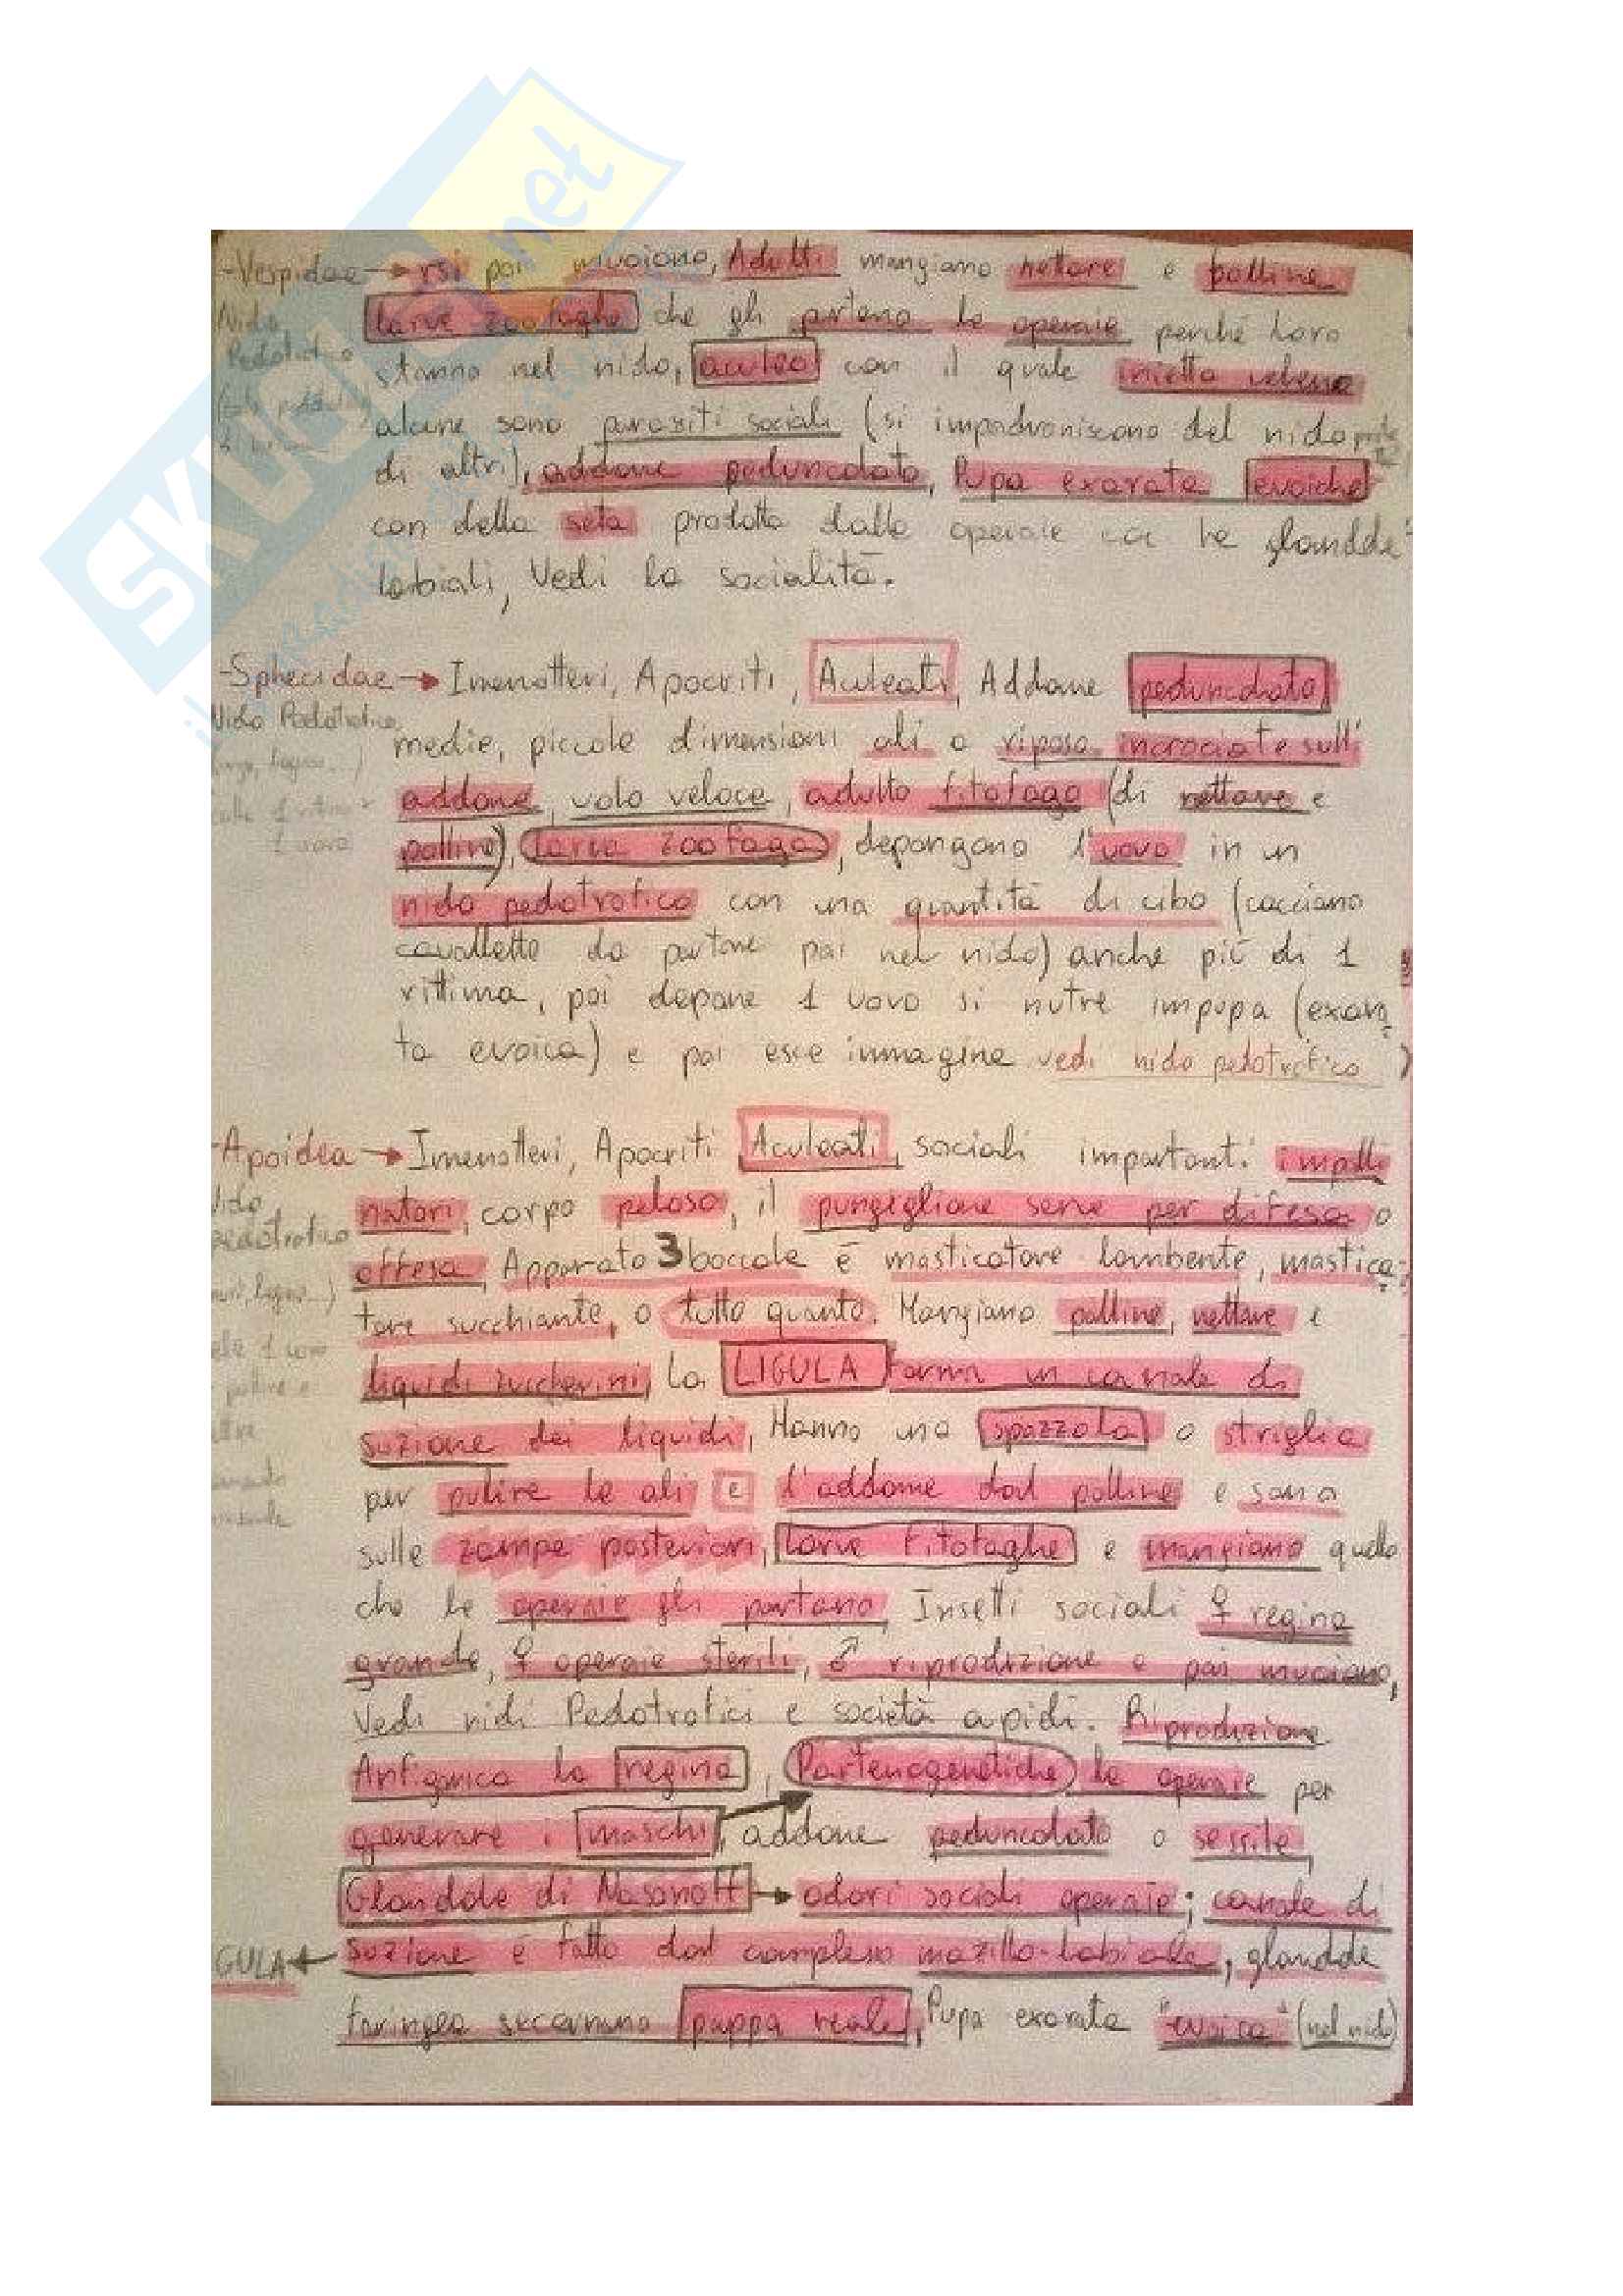 -Vespidae → rsi poi muoiono, Adulti mangiano nettare e polline
Nido
larve zoofaghe che gli portano le operaie perché loro
Pedotrofico
stanno nel nido, aculeo con il quale inietta veleno
alcune sono parassiti sociali (si impadroniscono del nido
di altri), addome peduncolato, Pupa exarata evoiche
con della seta prodotta dalle operaie con le ghiandole
labiali, Vedi la socialità.
-Sphecidae → Imenotteri, Apocriti, Aculeati, Addome peduncolato
Nido Pedotrofico
medie, piccole dimensioni ali a riposo incrociate sull'
addome, volo veloce, adulto fitofago (di nettare e
1 uovo
polline), larva zoofaga, depongono l'uovo in un
nido pedotrofico con una quantità di cibo (cacciano
cavallette da portare poi nel nido) anche più di 1
vittima, poi depone 1 uovo si nutre impupa (exara
ta evoica) e poi esce immagine vedi nido pedotrofico
-Apoidea → Imenotteri, Apocriti Aculeati, sociali importanti impolli
natori, corpo peloso, il pungiglione serve per difesa o
pedotrofico
offesa, Apparato 3 boccale è masticatore lambente, mastica-
tore succhiante, o tutto quanto. Mangiano polline, nettare e
liquidi zuccherini, la LIGULA forma un canale di
suzione dei liquidi, Hanno una spazzola o striglia
per pulire le ali e l'addome dal polline e sono
sulle zampe posteriori, larve fitofaghe e mangiano quello
che le operaie gli portano, Insetti sociali ♀ regina
grande, ♀ operaie sterili, ♂ riproduzione e poi muoiono,
Vedi nidi Pedotrofici e società apidi. Riproduzione
Anfigonica la regina, Partenogenetiche le operaie per
generare i maschi, addome peduncolato o sessile,
Glandole di Nasonoff → odori sociali operaie; canale di
GULA ← suzione è fatto dal complesso maxillo-labiale, glandole
faringee secernono pappa reale, Pupa exarata "evoica" (nel nido)
SKUOLA.net